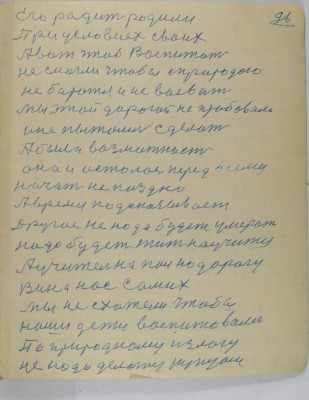 96
Его радит родили
При условиях своих
А вот чтоб воспитат
не смогли чтобы с природою
не баротся и не воеват
мы этой дорогой не пробовали
и не пыталис сделат
А была возможност
она и осталос перед всеми
начат не поздно
А время подсказывает
другое не нада будет умерат
надо будет жит научится
А учител на пои на дорогу
Вина нас самих
мы не схотели чтобы
наши дети воспитовали
По природному
не нада делат